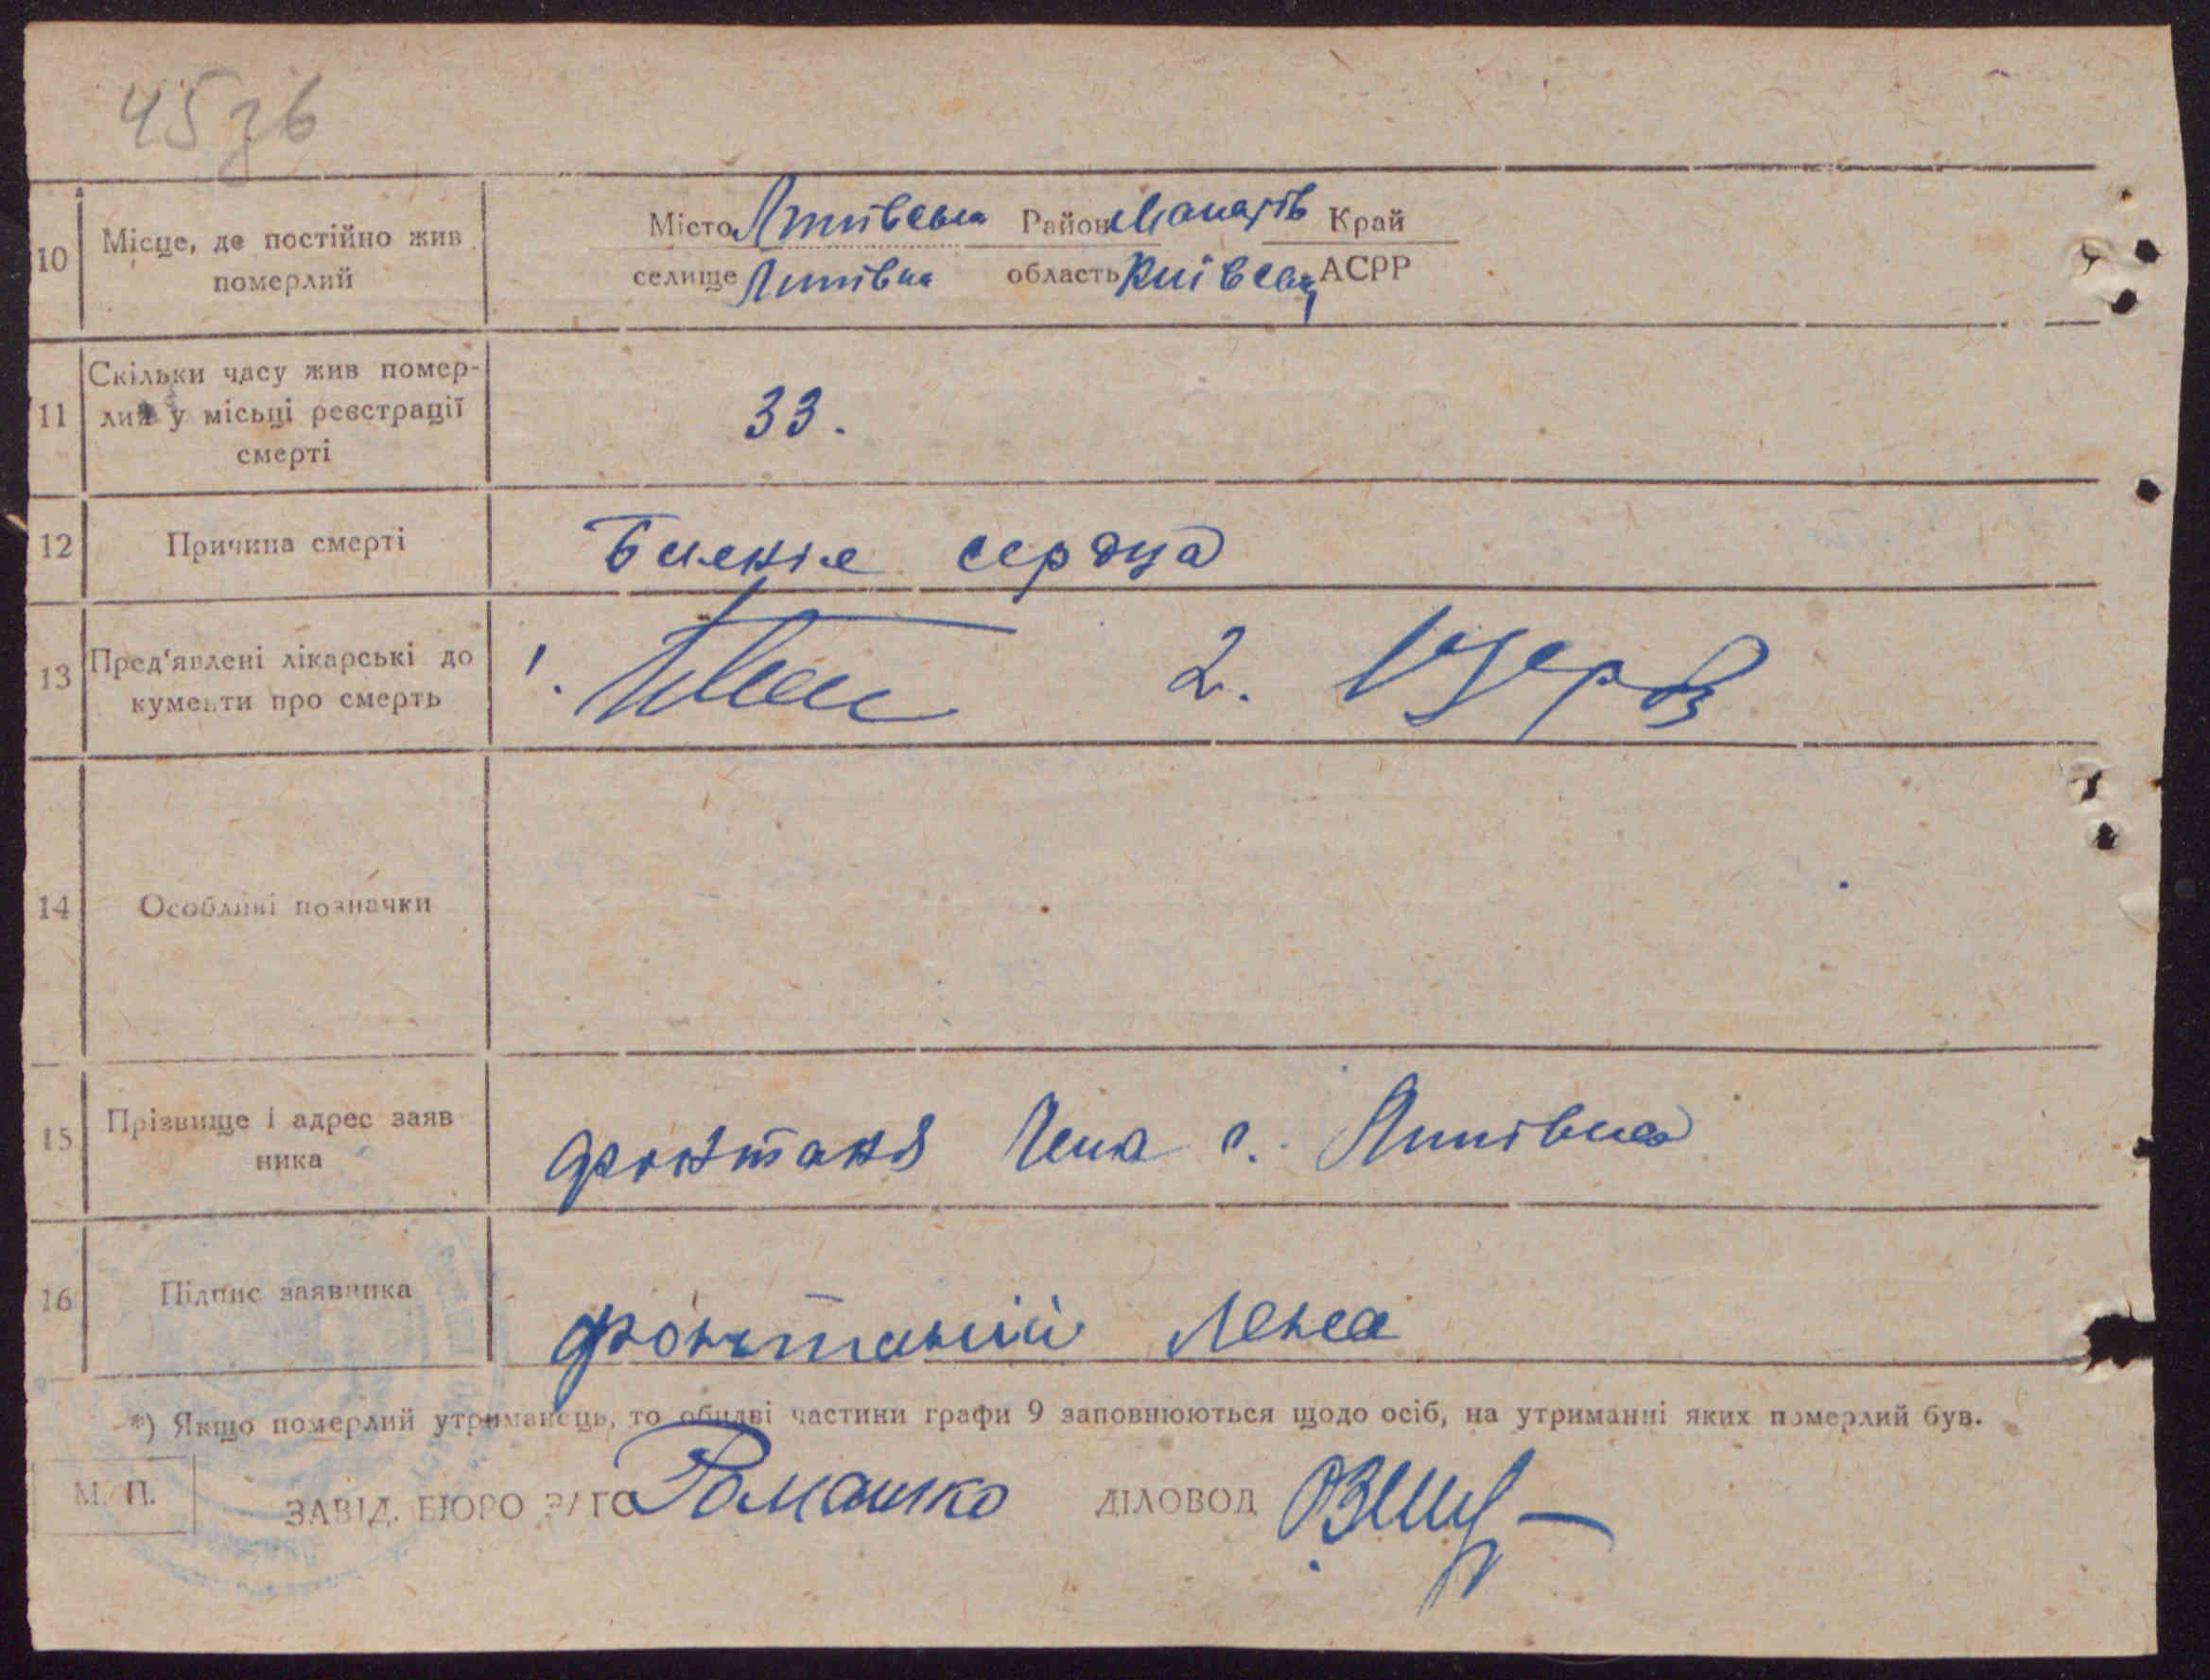 45 зв
Місто Липівська Район Макарів Край
10 Місце, де постійно жив померлий
селище Липівка область Київська АСРР
11 Скільки часу жив помер-
лий у місьці реєстрації
смерті
33.
12 Причина смерті Биение сердца
13 Пред'явлені лікарські до
кументи про смерть
1. 2.
14 Особливі позначки
15 Прізвище і адрес заяв
ника
Фонтаня Лена с. Липівка
16 Підпис заявника
Фонтаній Лена
*) Якщо померлий утриманець, то обидві частини графи 9 заповнюються щодо осіб, на утриманні яких померлий був.
М. П. ЗАВІД. БЮРО ЗАГС Ромашко ДІЛОВОД